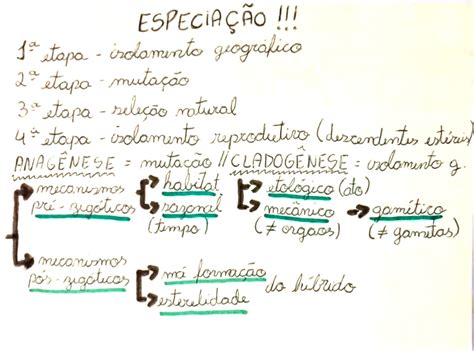 ESPECIAÇÃO !!!
1ª etapa - isolamento geográfico
2ª etapa - mutação
3ª etapa - seleção natural
4ª etapa - isolamento reprodutivo (descendentes estéreis)
ANAGÊNESE = mutação // CLADOGÊNESE = isolamento g.
mecanismos habitat etológico (ato)
pré-zigóticos sazonal mecânico gamético
(tempo) (≠ orgaos) (≠ gametas)
mecanismos má formação
pós-zigóticos esterelidade do híbrido